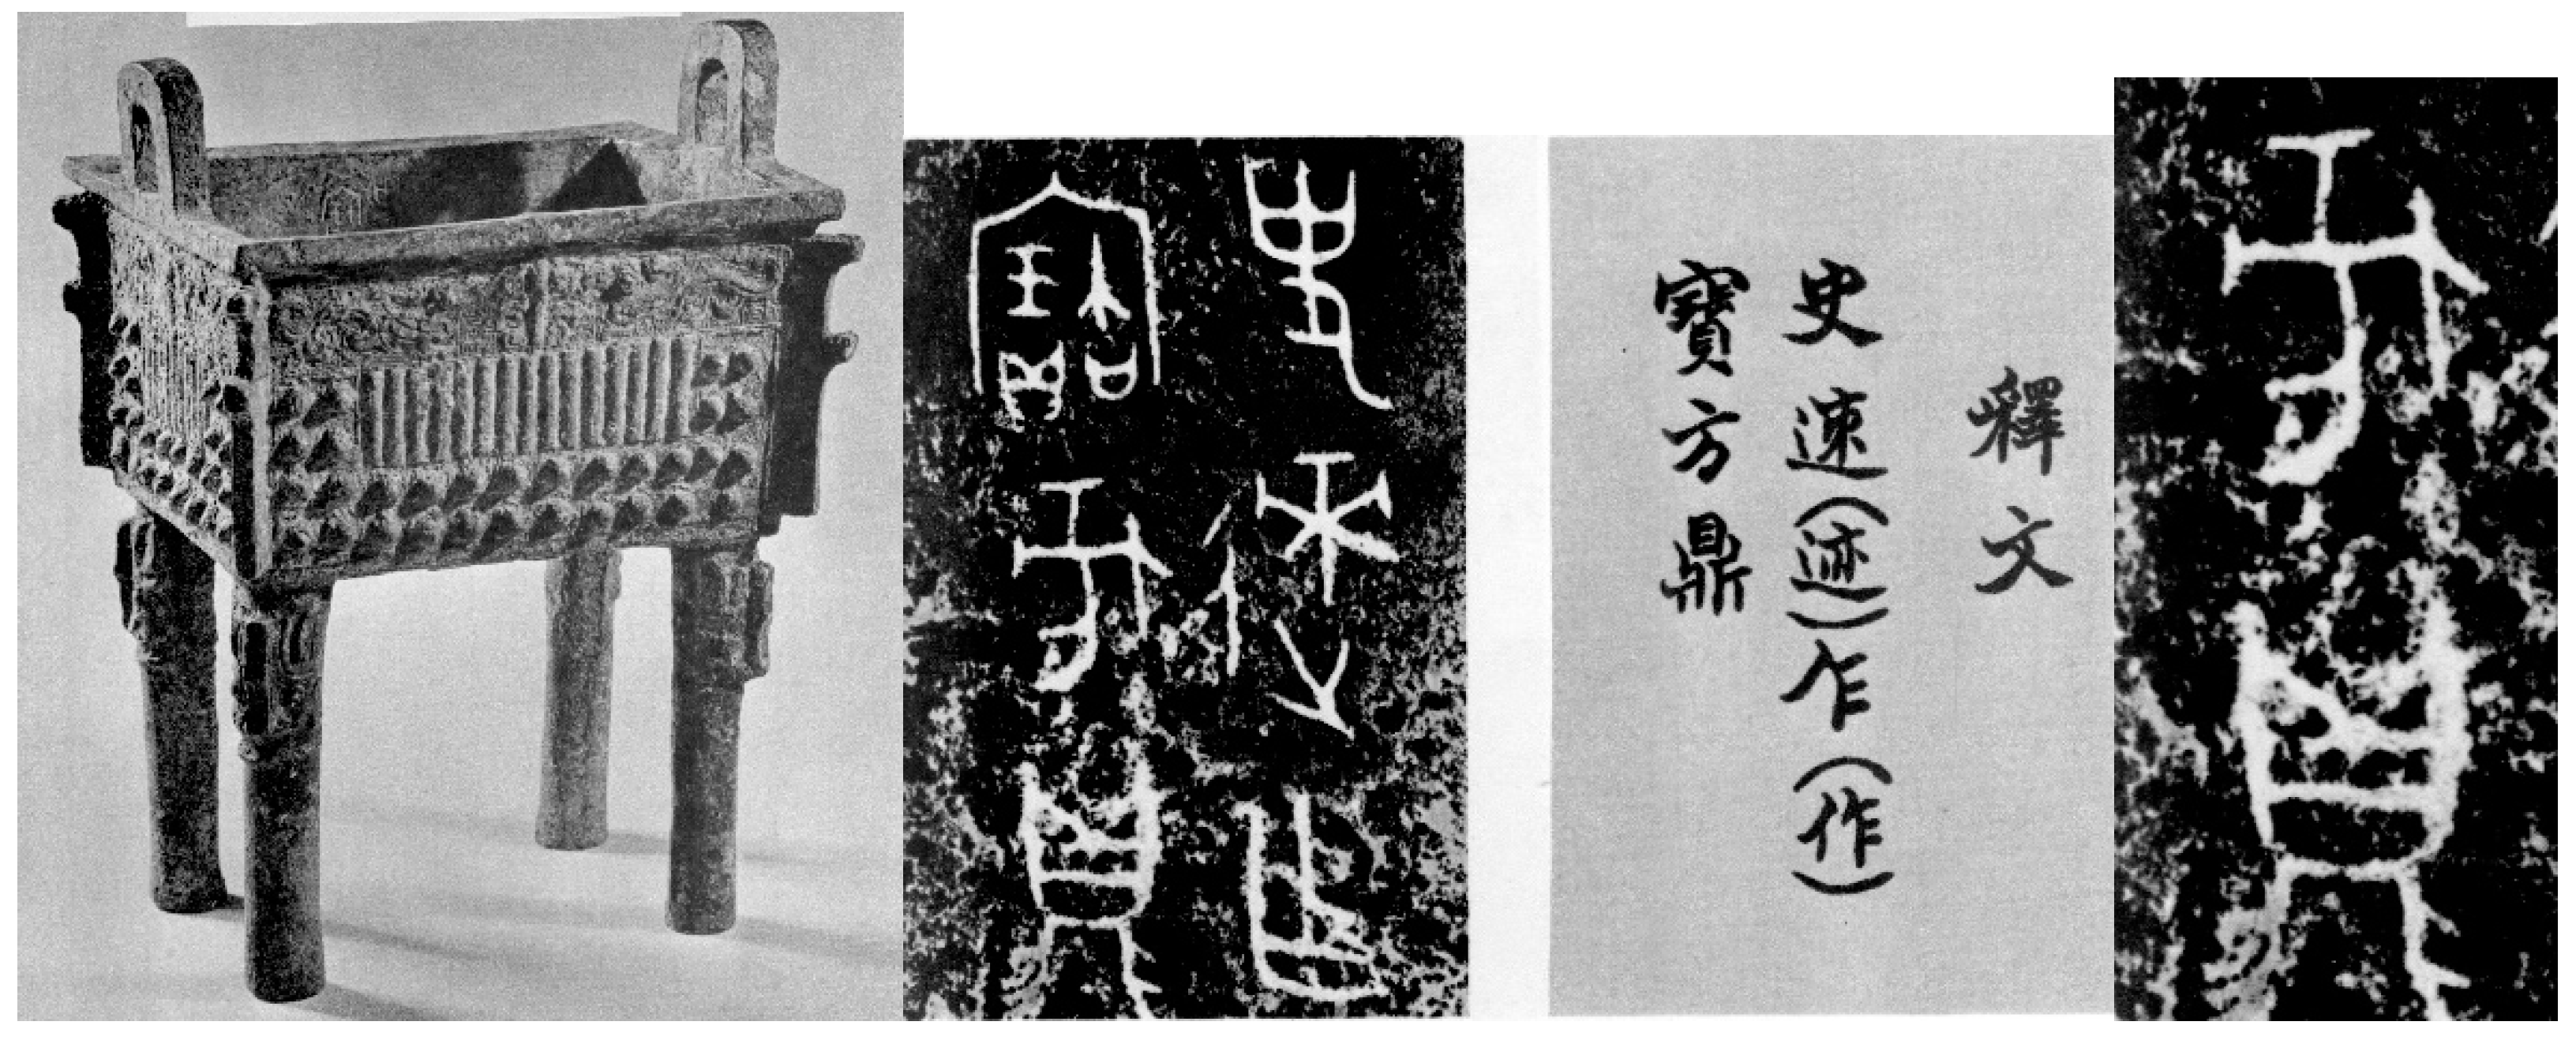 釋文
史速(迹)乍(作)
寶方鼎